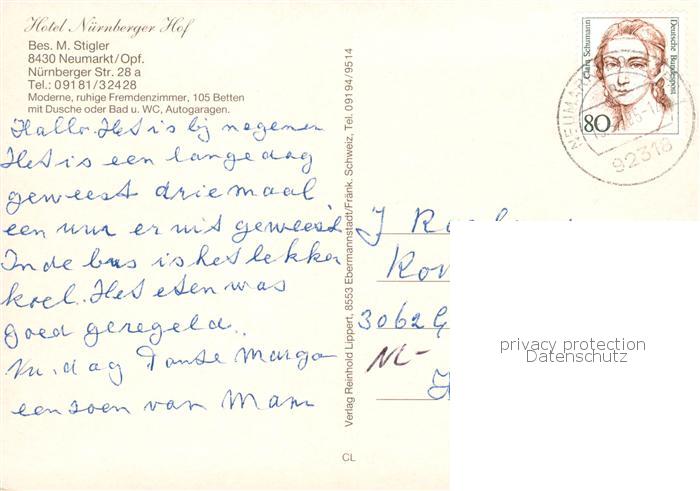 Hotel Nürnberger Hof
Bes. M. Stigler
8430 Neumarkt/Opf.
Nürnberger Str. 28 a
Tel.: 09181/32428
Moderne, ruhige Fremdenzimmer, 105 Betten
mit Dusche oder Bad u. WC, Autogaragen.
Hallo. Het is bij negenen
Het is een lange dag
geweest driemaal
een uur er uit geweest
In de bus is het lekker
koel. Het eten was
goed geregeld..
dag Tante Marga
een zoen van Mam
Verlag Reinhold Lippert, 8553 Ebermannstadt/Fränk. Schweiz, Tel. 09194/9514
CL
Clara Schumann
Deutsche Bundespost
80
92318
3062 G
NL-
privacy protection
Datenschutz